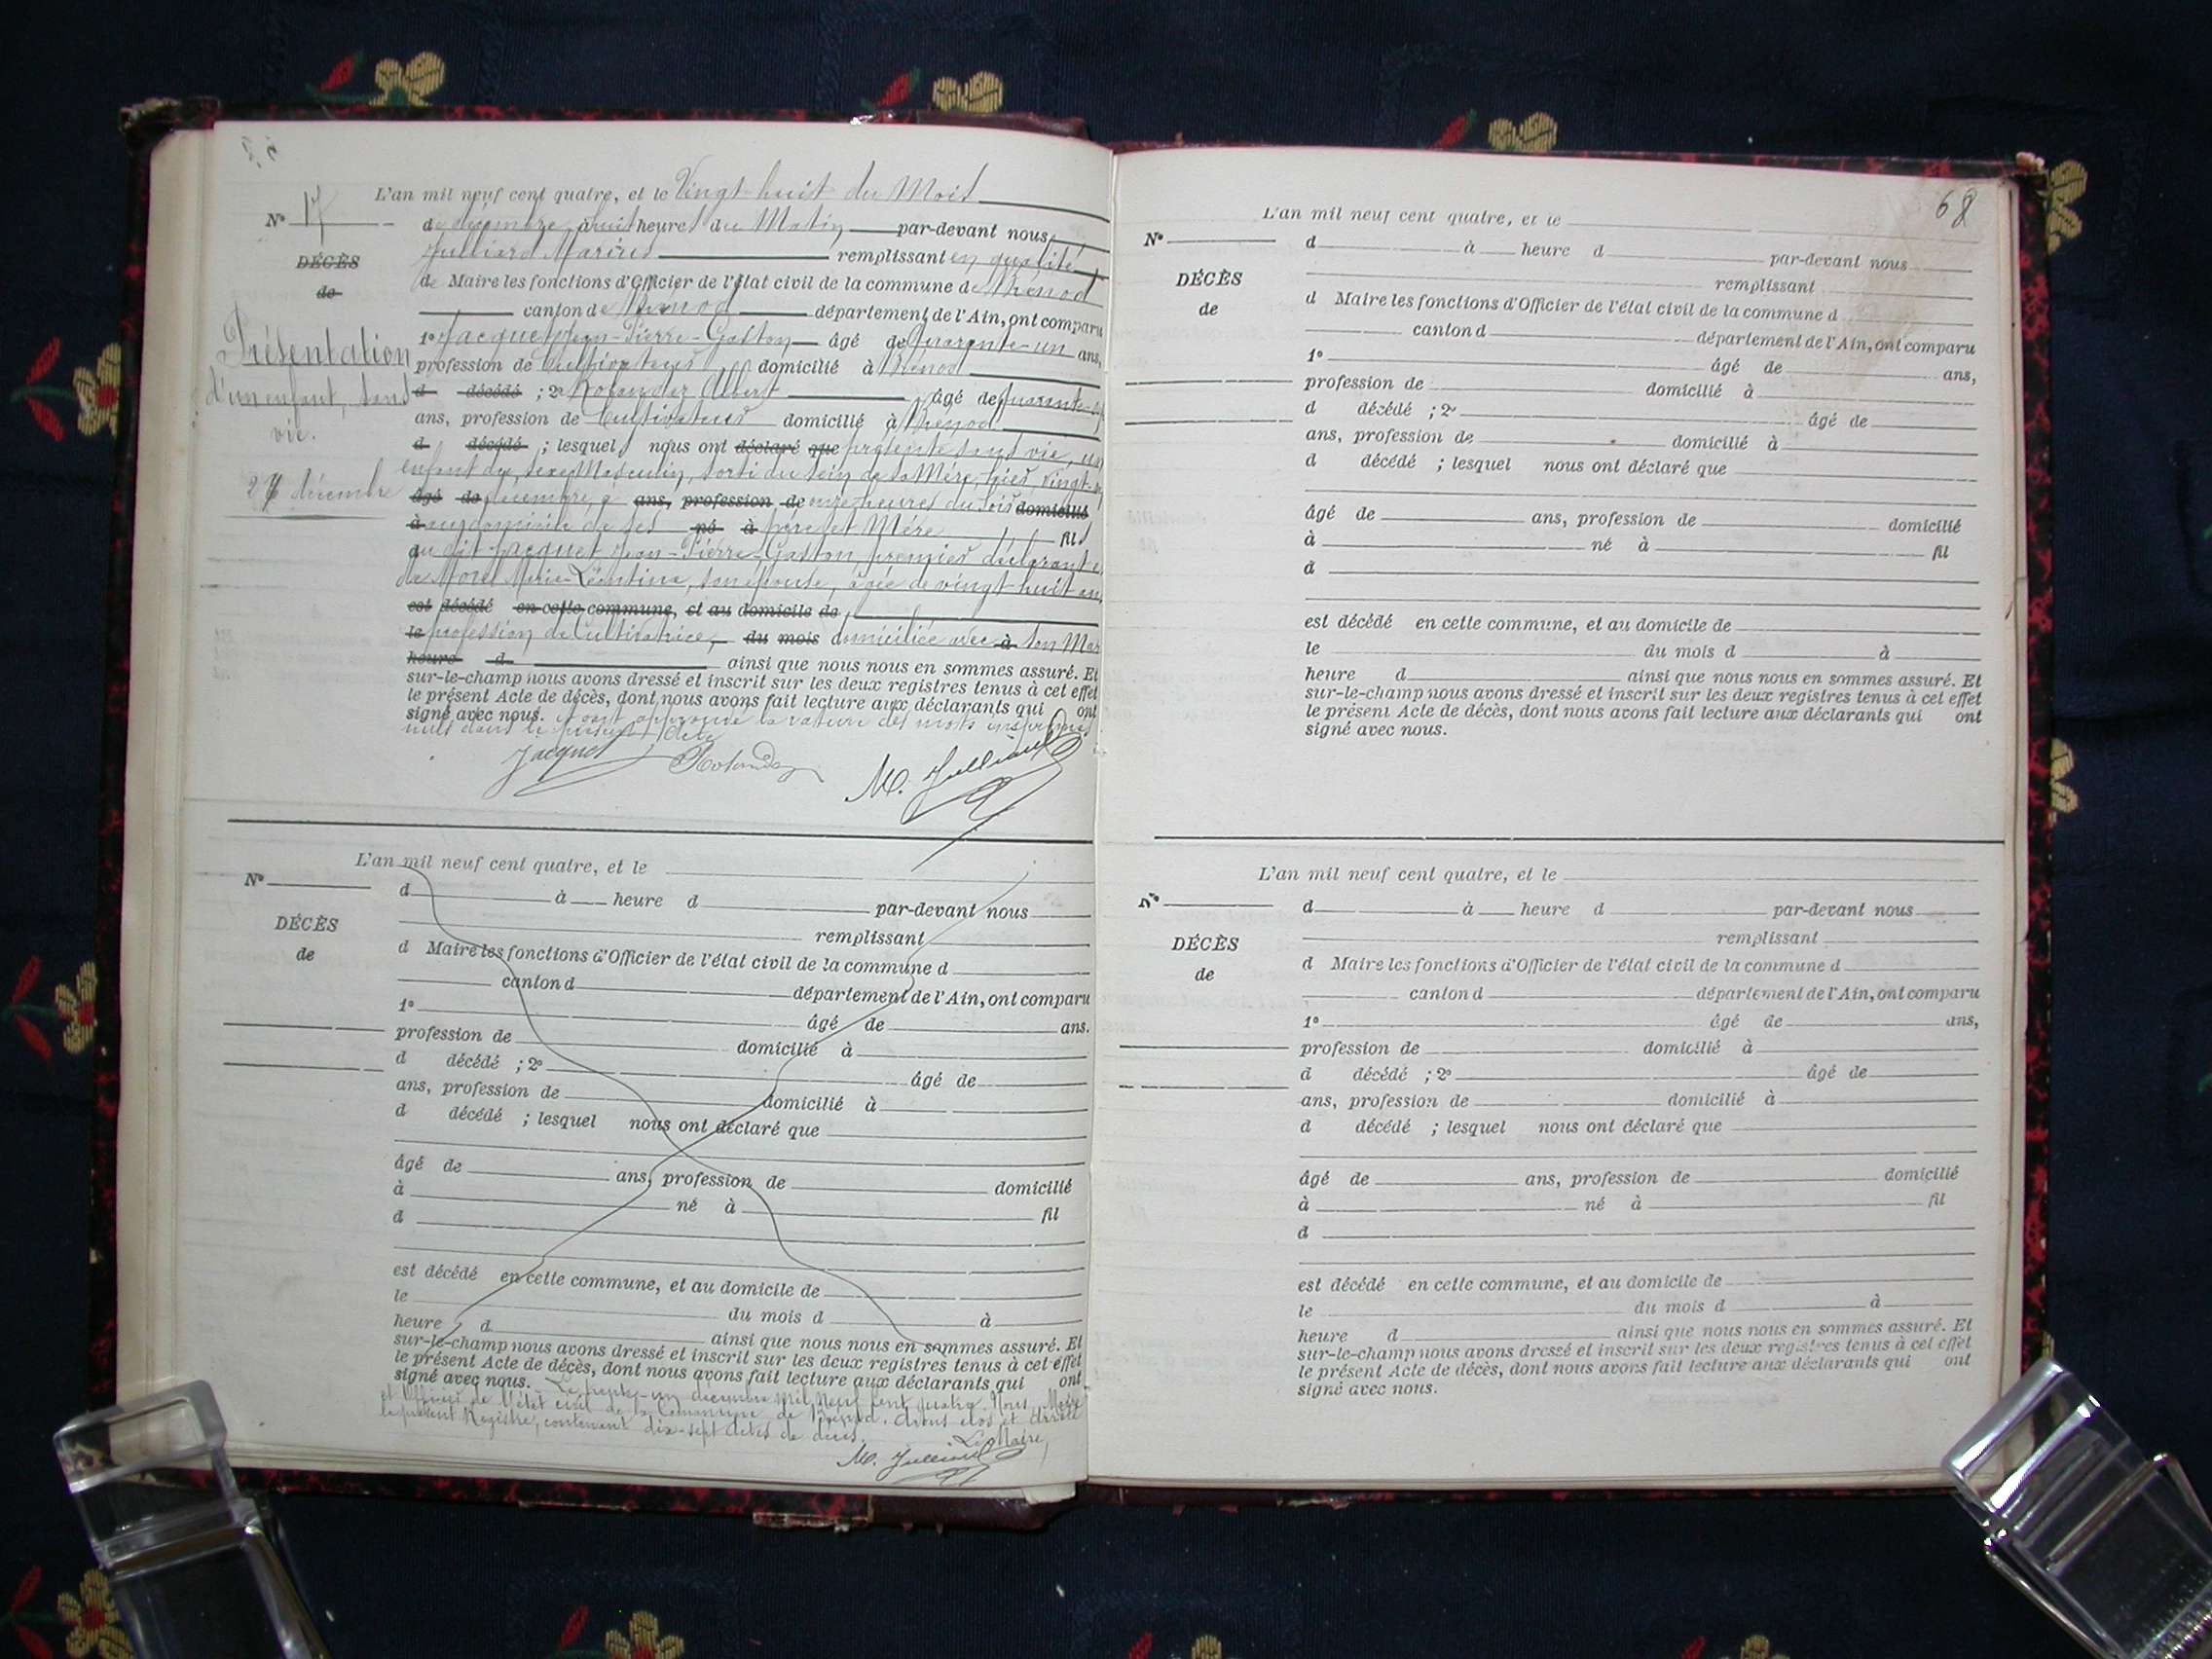 L'an mil neuf cent quatre, et le Vingt huit du Mois
N° 17
de décembre, à huit heures du Matin par-devant nous
Julliard Marius remplissant en qualité
DÉCÈS
de
de Maire les fonctions d'Officier de l'état civil de la commune de Brénod
canton de Brénod département de l'Ain, ont comparu
1° Jacquet Jean-Pierre-Gaston âgé de quarante-un ans,
Présentation
d'un enfant, sans
vie.
27 décembre
profession de Cultivateur domicilié à Brénod
d décédé ; 2° Rolandez Albert âgé de quarante-
ans, profession de Cultivateur domicilié à Brénod
d décédé ; lesquels nous ont déclaré que présenté sans vie, un
enfant du sexe Masculin, sorti du sein de sa Mère, hier, vingt-
âgé de décembre, à ans, profession de onze heures du soir domicilié
à au domicile de ses né à père et Mère fils
du dit Jacquet Jean-Pierre-Gaston, premier déclarant e
de Morel Marie-Léontine, son épouse, âgée de vingt huit an
est décédé en cette commune, et au domicile de
le profession de Cultivatrice, du mois domiciliée avec à son Mar
heure d ainsi que nous nous en sommes assuré. Et
sur-le-champ nous avons dressé et inscrit sur les deux registres tenus à cet effet
le présent Acte de décès, dont nous avons fait lecture aux déclarants qui ont
signé avec nous. et ont approuvé la rature des mots imprimés
nuls dans le présent Acte
Jacquet Rolandez M. Julliard
L'an mil neuf cent quatre, et le
N°
d à heure d par-devant nous
remplissant
DÉCÈS
de
d Maire les fonctions d'Officier de l'état civil de la commune d
canton d département de l'Ain, ont comparu
1° âgé de ans.
profession de domicilié à
d décédé ; 2° âgé de
ans, profession de domicilié à
d décédé ; lesquel nous ont déclaré que
âgé de ans, profession de domicilié
à né à fil
d
est décédé en cette commune, et au domicile de
le du mois d à
heure d ainsi que nous nous en sommes assuré. Et
sur-le-champ nous avons dressé et inscrit sur les deux registres tenus à cet effet
le présent Acte de décès, dont nous avons fait lecture aux déclarants qui ont
signé avec nous. Le trente-un décembre Mil Neuf Cent quatre. Nous, Maire
et Officier de l'état civil de la Commune de Brénod. Avons clos et Arrêté
le présent Registre, contenant dix-sept Actes de décès.
Le Maire,
M. Julliard
68
L'an mil neuf cent quatre, et le
N°
d à heure d par-devant nous
remplissant
DÉCÈS
de
d Maire les fonctions d'Officier de l'état civil de la commune d
canton d département de l'Ain, ont comparu
1° âgé de ans,
profession de domicilié à
d décédé ; 2° âgé de
ans, profession de domicilié à
d décédé ; lesquel nous ont déclaré que
âgé de ans, profession de domicilié
à né à fil
d
est décédé en cette commune, et au domicile de
le du mois d à
heure d ainsi que nous nous en sommes assuré. Et
sur-le-champ nous avons dressé et inscrit sur les deux registres tenus à cet effet
le présent Acte de décès, dont nous avons fait lecture aux déclarants qui ont
signé avec nous.
L'an mil neuf cent quatre, et le
N°
d à heure d par-devant nous
remplissant
DÉCÈS
de
d Maire les fonctions d'Officier de l'état civil de la commune d
canton d département de l'Ain, ont comparu
1° âgé de ans,
profession de domicilié à
d décédé ; 2° âgé de
ans, profession de domicilié à
d décédé ; lesquel nous ont déclaré que
âgé de ans, profession de domicilié
à né à fil
d
est décédé en cette commune, et au domicile de
le du mois d à
heure d ainsi que nous nous en sommes assuré. Et
sur-le-champ nous avons dressé et inscrit sur les deux registres tenus à cet effet
le présent Acte de décès, dont nous avons fait lecture aux déclarants qui ont
signé avec nous.